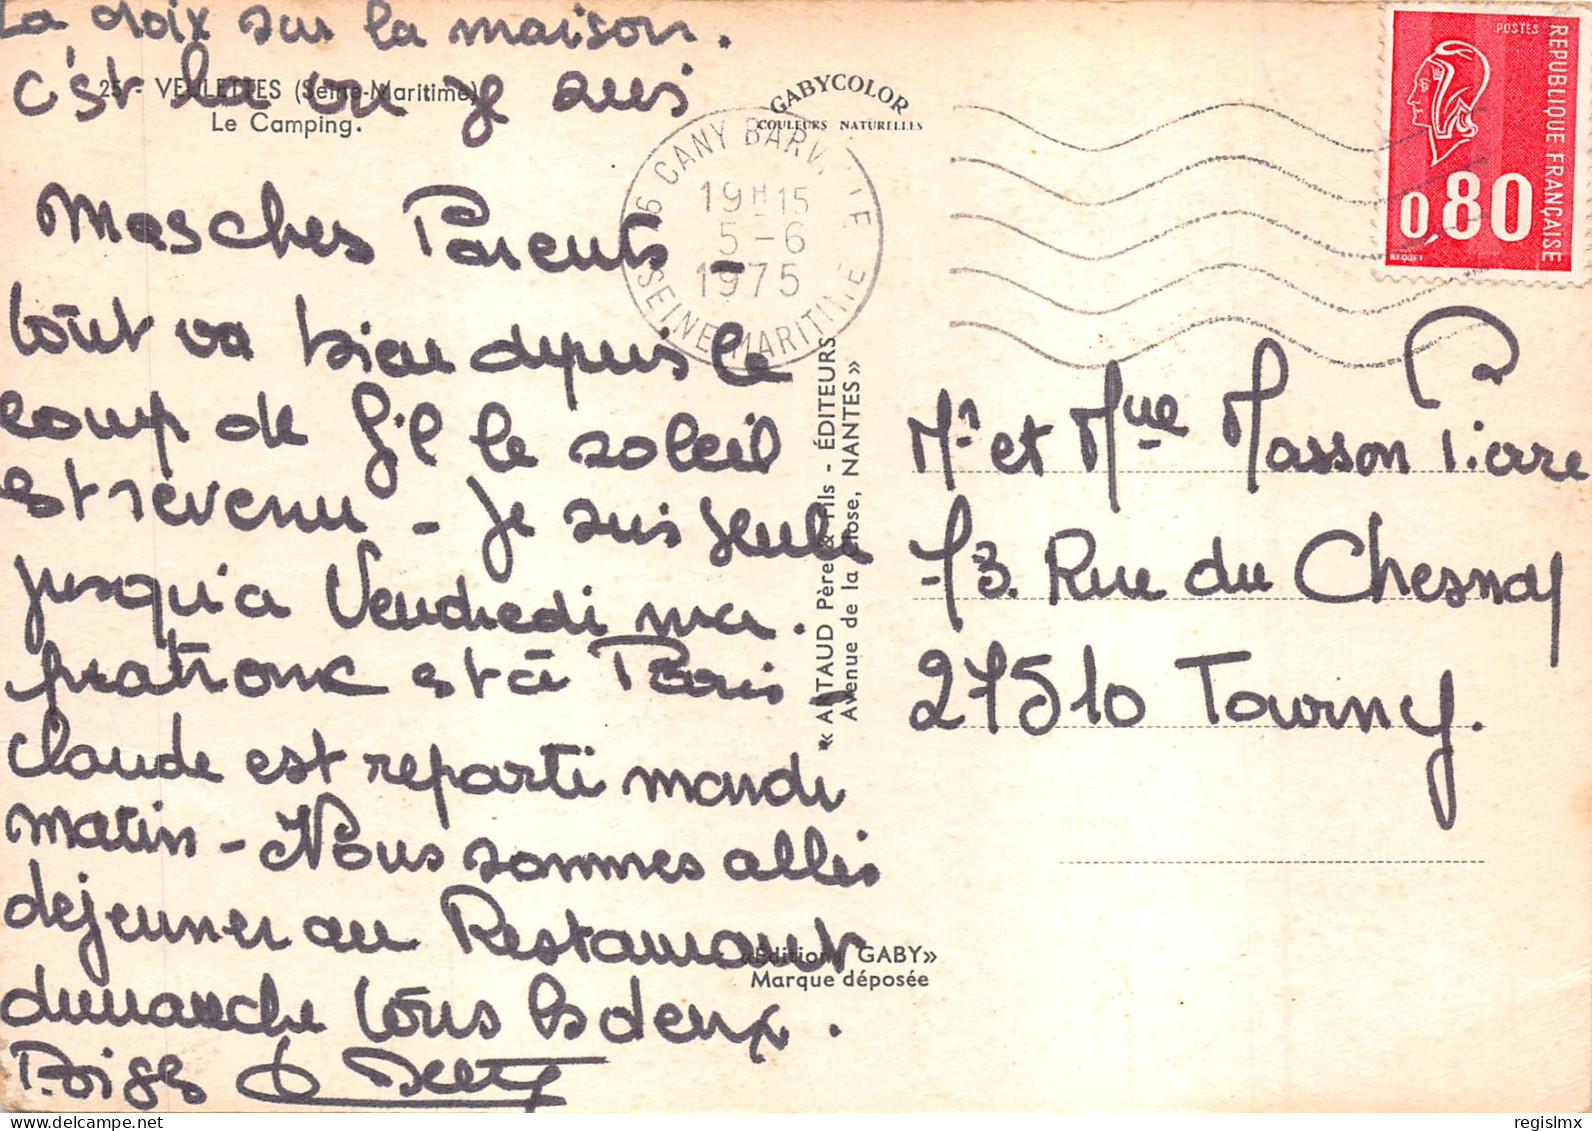 La croix sur la maison.
c'est la ou je suis
25 - VEULETTES (Seine-Maritime)
Le Camping.
GABYCOLOR
COULEURS NATURELLES
76 CANY BARV. LLE
19H15
5-6
1975
SEINE MARITIME
POSTES
REPUBLIQUE FRANÇAISE
0,80
BEQUET
Mes ches Parents -
tout va bien depuis le
coup de fil le soleil
est revenu - Je suis seule
jusqu'a Vendredi ma.
patronne est à Paris
Claude est reparti mardi
matin - Nous sommes allés
dejeuner au Restaurant
dimanche tous les deux.
Mr et Mme Masson Pierre
13. Rue du Chesnay
27510 Tourny.
« ARTAUD Père & Fils - ÉDITEURS
Avenue de la Close, NANTES »
«Editions GABY»
Marque déposée
regislmx